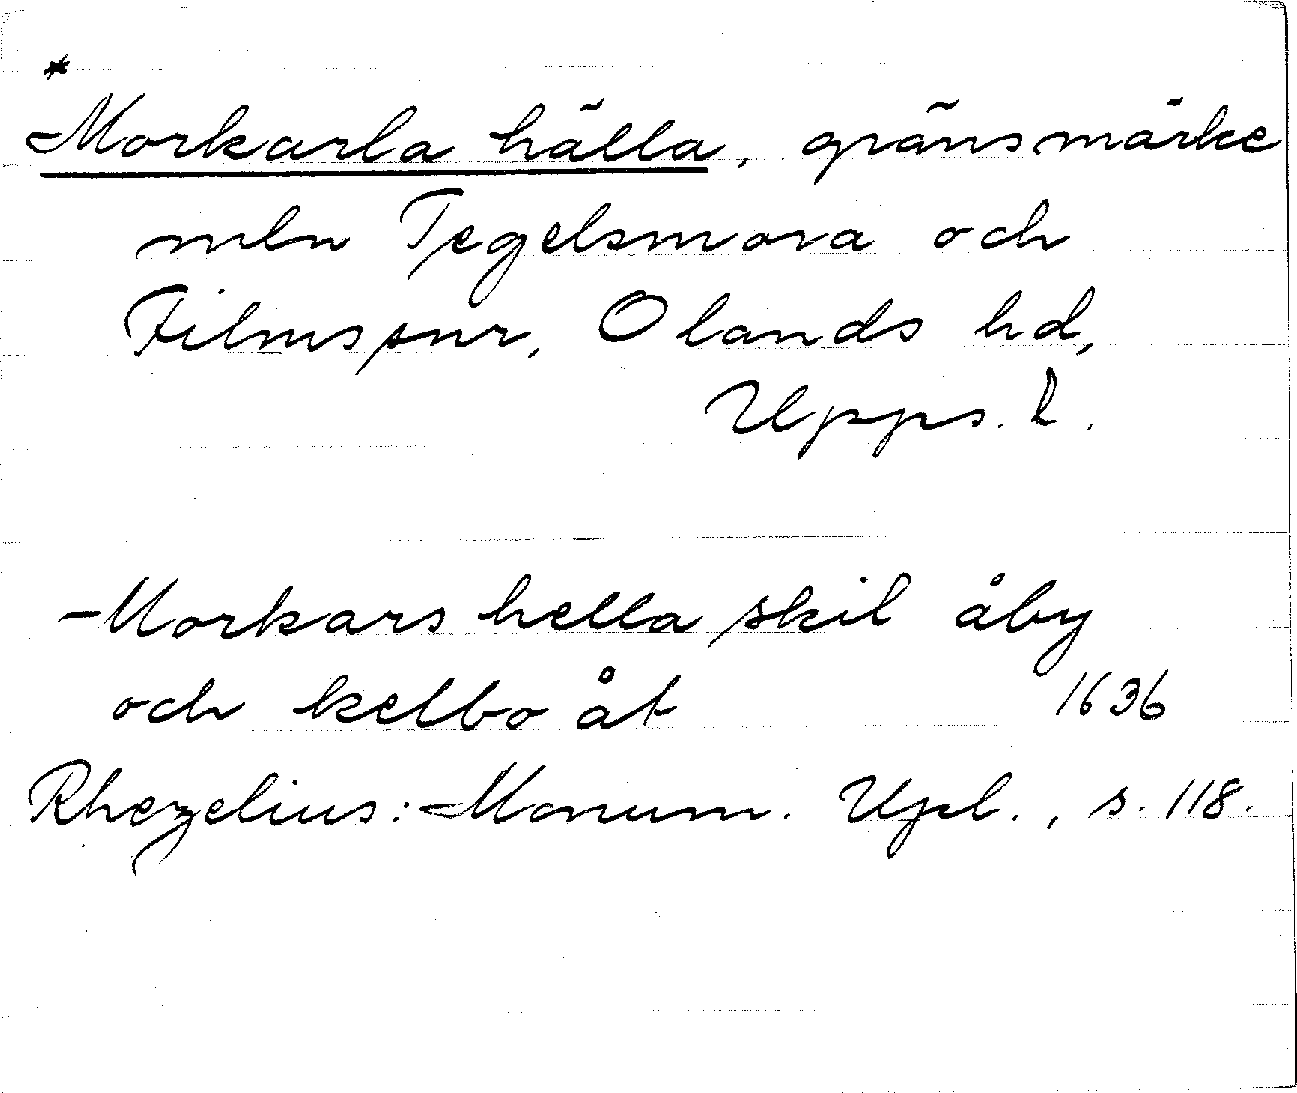 *
Morkarla hälla, gränsmärke
mln Tegelsmora och
Films snr, Olands hd,
Upps. l.
Morkars hella skil åby
och kelbo åt 1636
Rhezelius: Monum. Upl., s. 118.